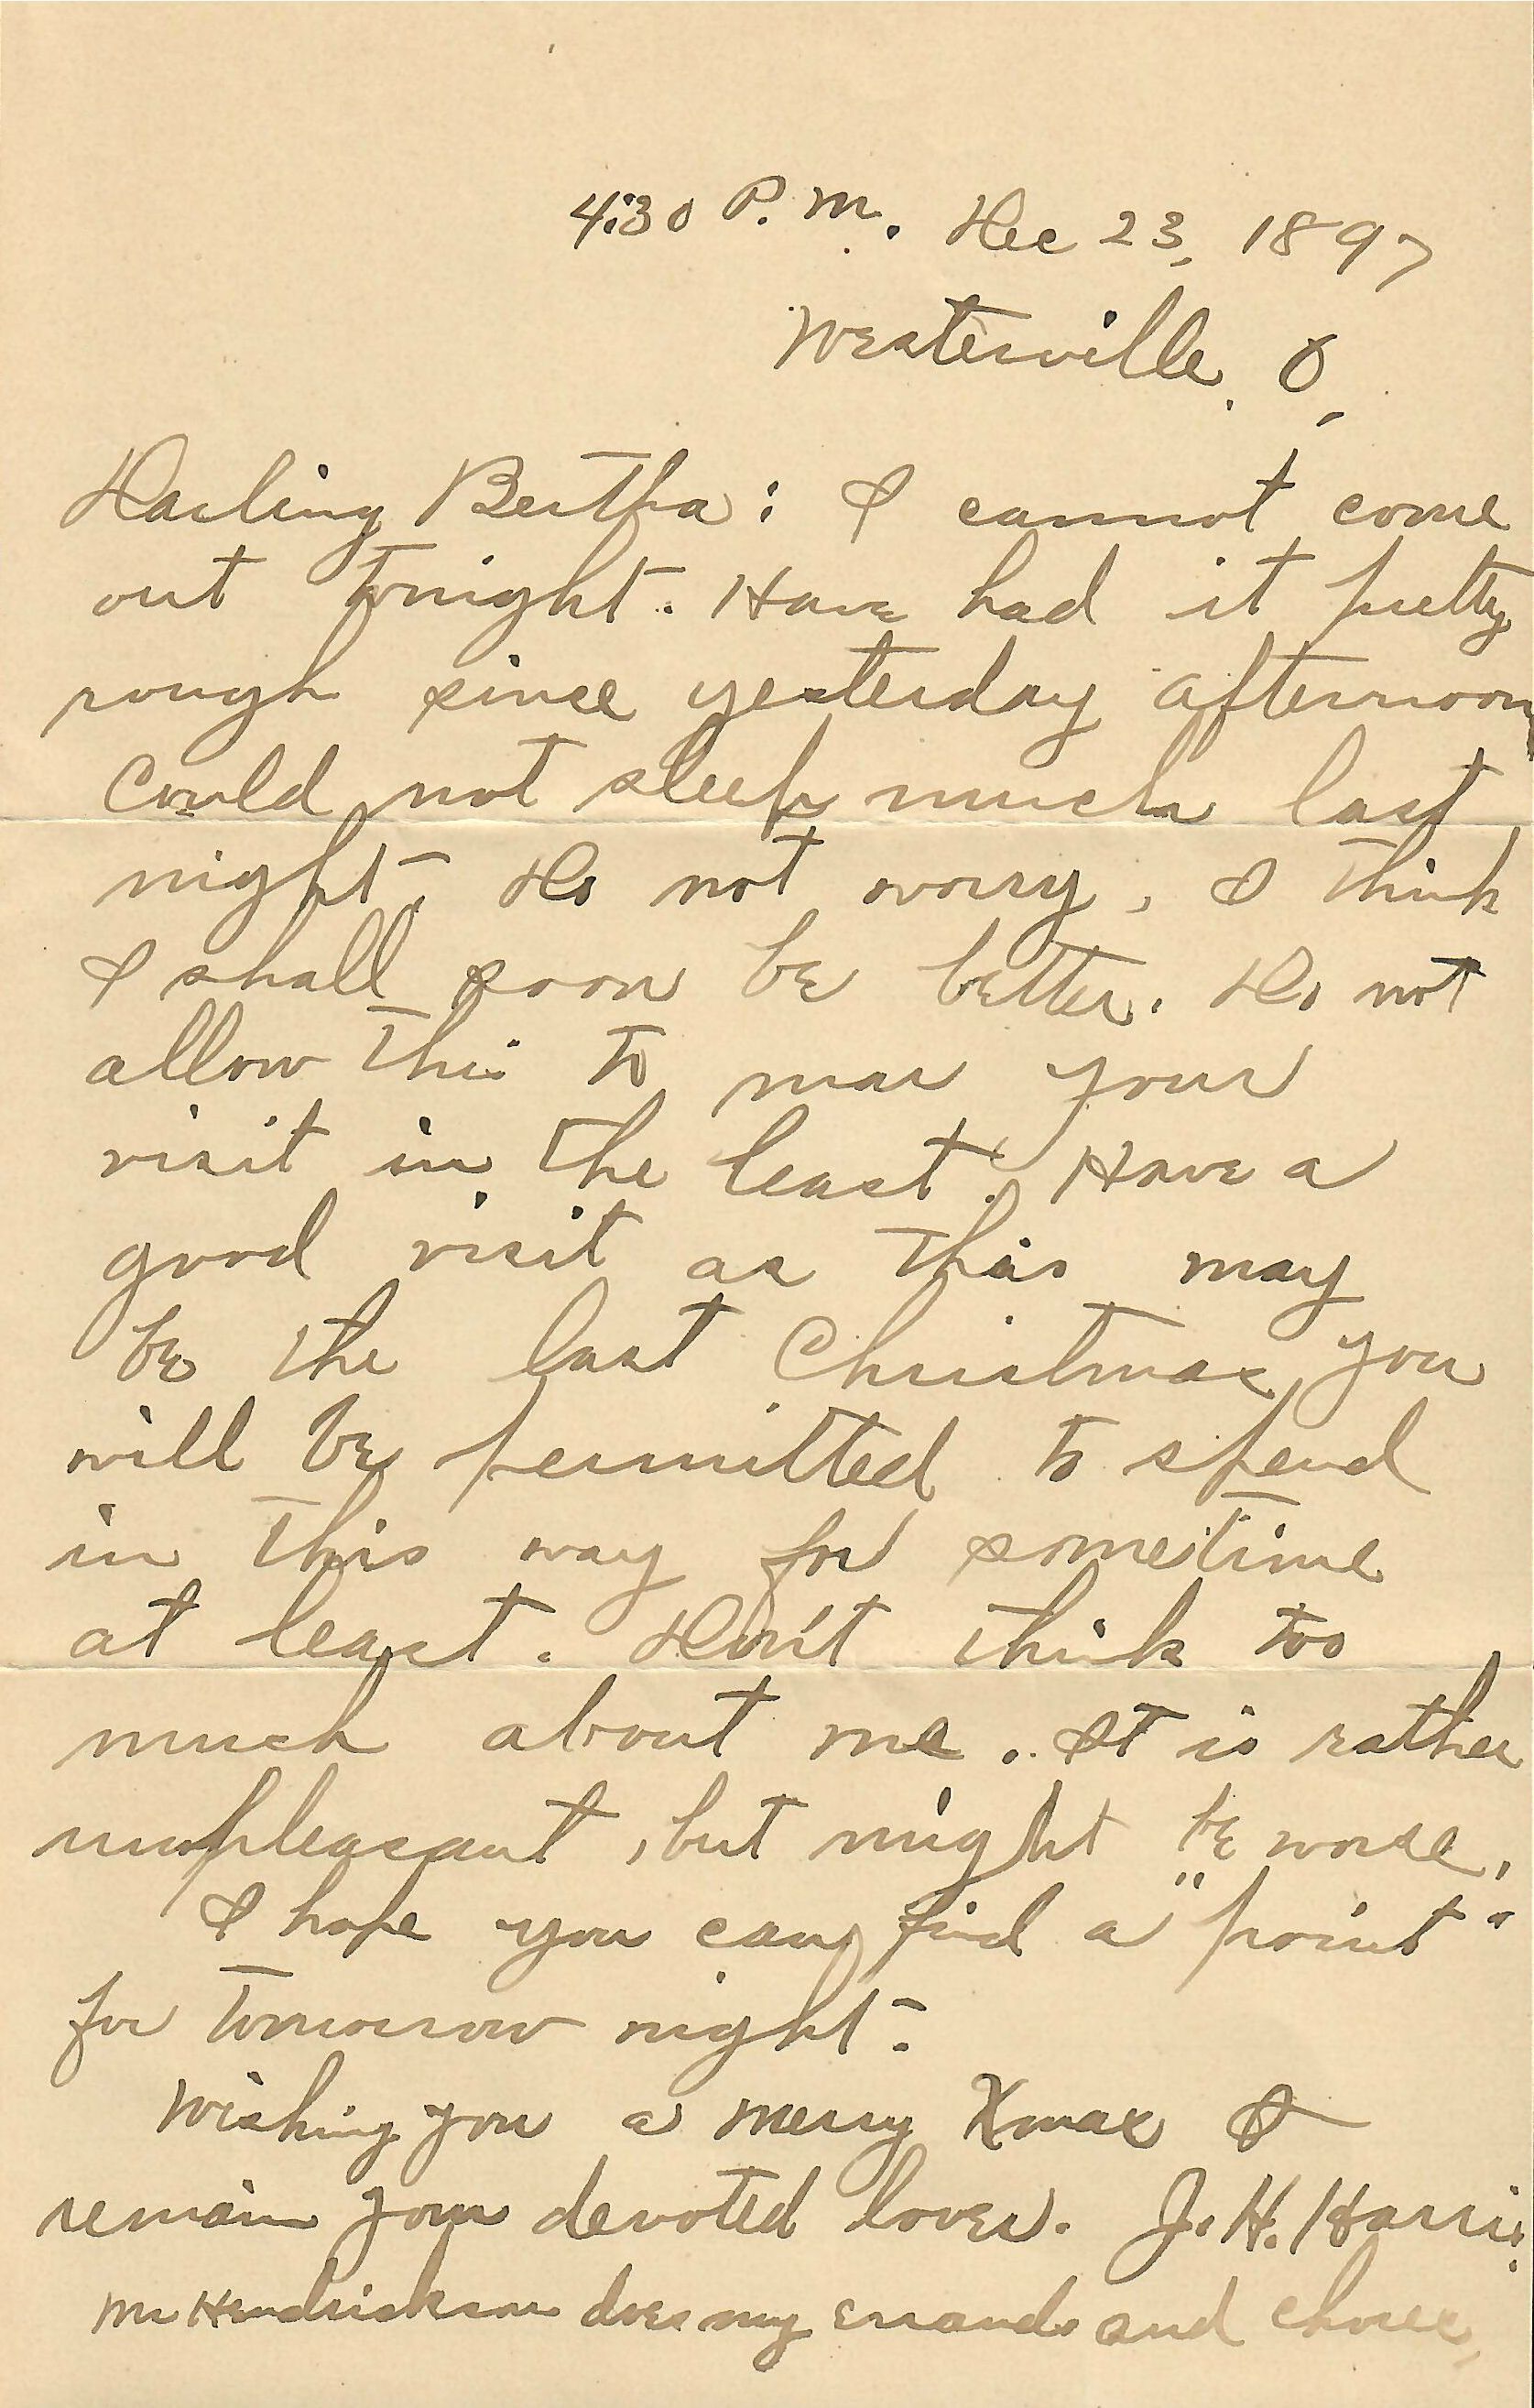 4:30 P.M. Dec 23, 1897
Westerville, O.
Darling Bertha: I cannot come
out tonight. Have had it pretty
rough since yesterday afternoon
Could not sleep much last
night. Do not worry, I think
I shall soon be better. Do not
allow this to mar your
visit in the least. Have a
good visit as this may
be the last Christmas you
will be permitted to spend
in this way for sometime
at least. Don't think too
much about me. It is rather
unpleasant, but might be worse.
I hope you can find a "point"
for tomorrow night.
Wishing you a merry Xmas I
remain your devoted lover. J. H. Harris.
Mr Hendrickson does my errands and chores.